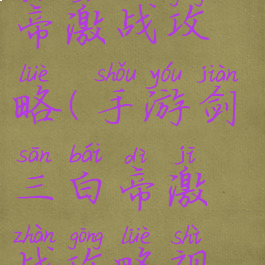 帝激战攻
lüè shǒu yóu jiàn
略(手游剑
sān bái dì jī
三白帝激
zhàn gōng lüè shì
战攻略视